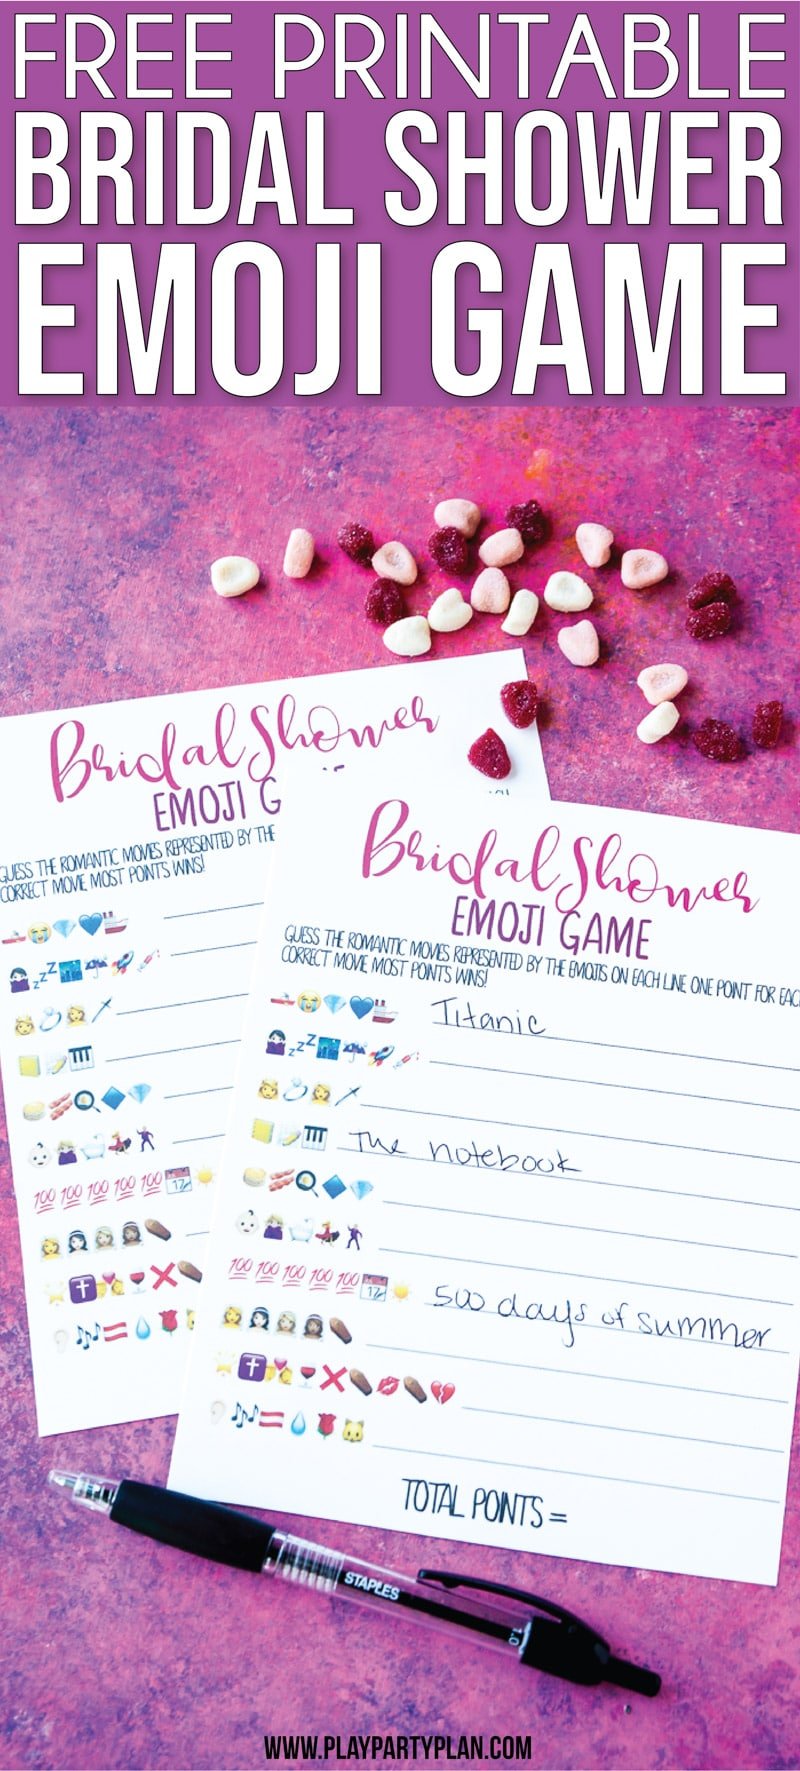 FREE PRINTABLE
BRIDAL SHOWER
EMOJI GAME
Bridal Shower
EMOJI G
GUESS THE ROMANTIC MOVIES REPRESENTED BY THE
CORRECT MOVIE MOST POINTS WINS!
Bridal Shower
EMOJI GAME
GUESS THE ROMANTIC MOVIES REPRESENTED BY THE EMOJIS ON EACH LINE ONE POINT FOR EACH
CORRECT MOVIE MOST POINTS WINS!
Titanic
The notebook
100 100 100 100 100 17
100 100 100 100 100 17 500 days of summer
TOTAL POINTS =
STAPLES
1.0
WWW.PLAYPARTYPLAN.COM